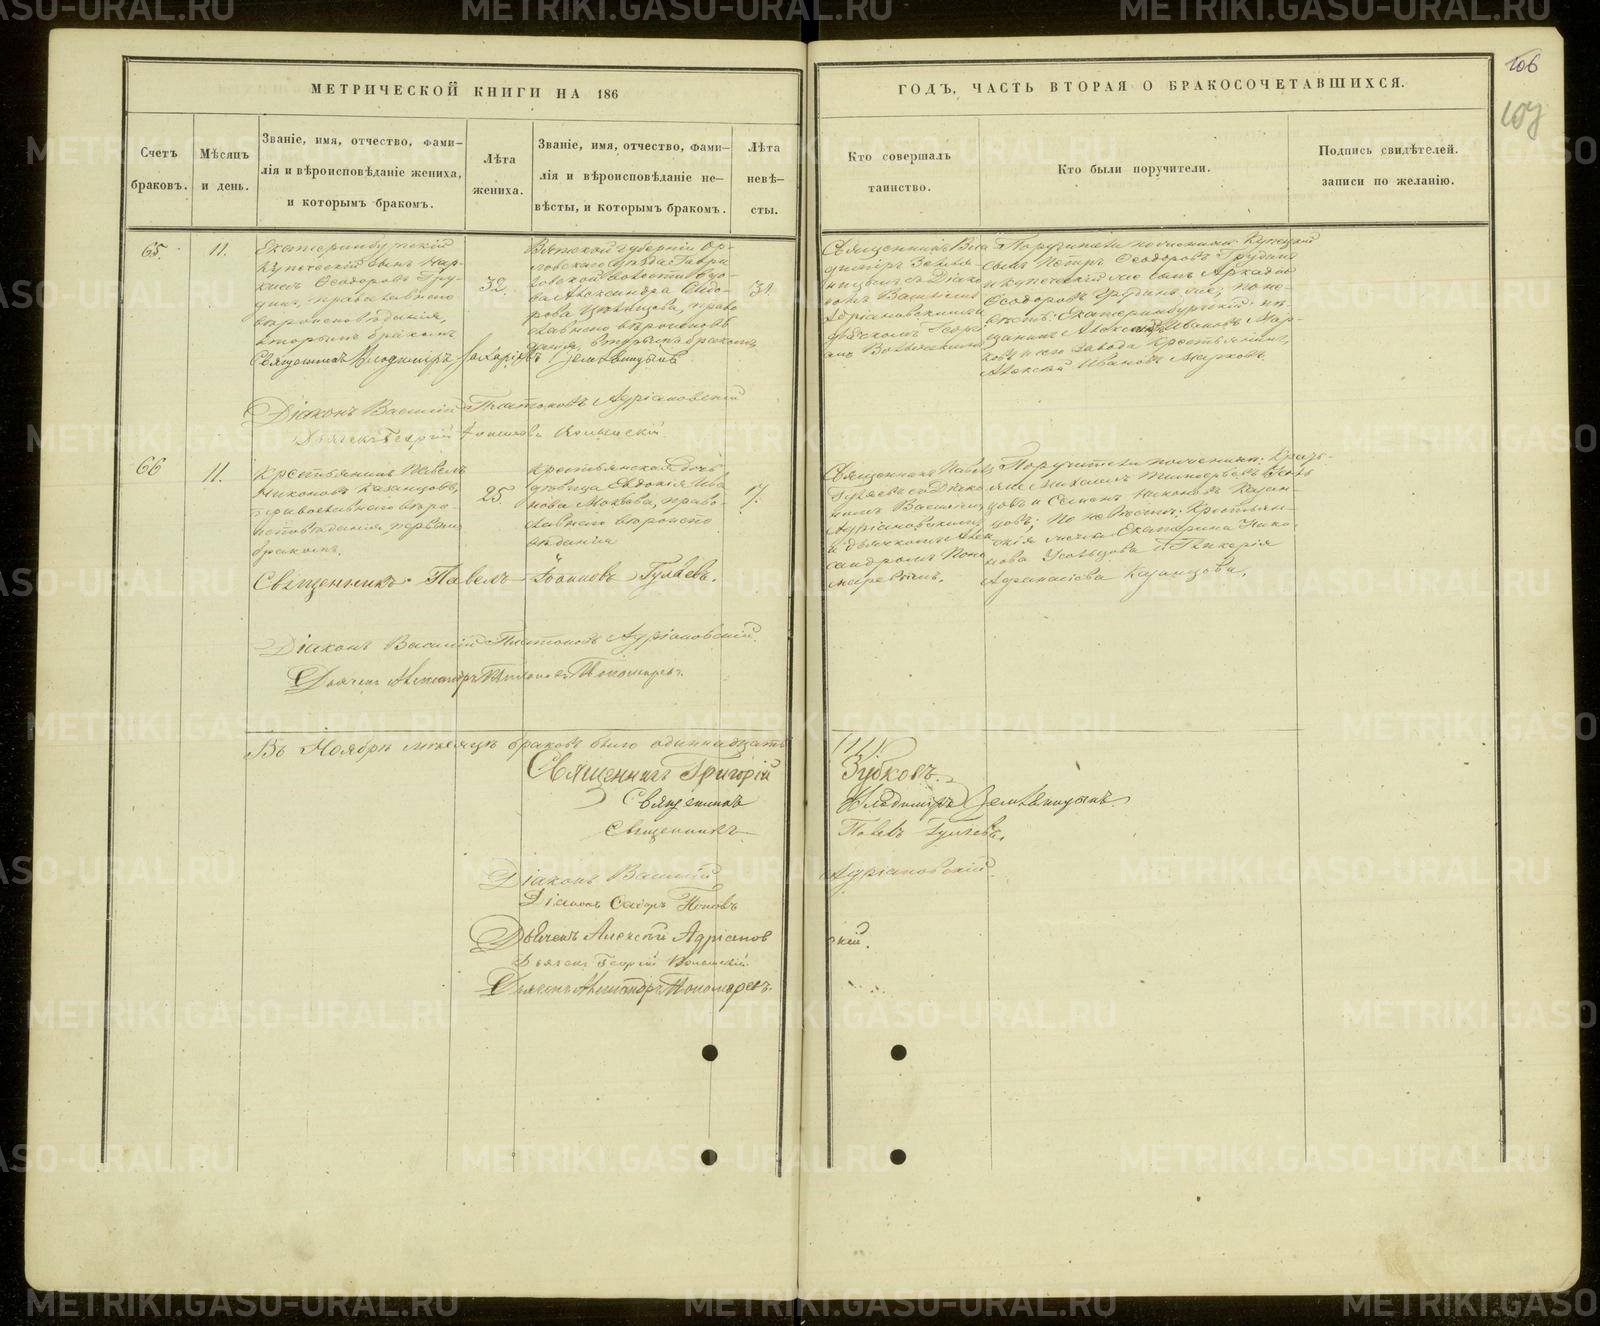 МЕТРИЧЕСКОЙ КНИГИ НА 186
ГОДЪ, ЧАСТЬ ВТОРАЯ О БРАКОСОЧЕТАВШИХСЯ.
106
107
Счетъ
браковъ.
Мѣсяцъ
и день.
Званіе, имя, отчество, фами-
лія и вѣроисповѣданіе жениха,
и которымъ бракомъ.
Лѣта
жениха.
Званіе, имя, отчество, фами-
лія и вѣроисповѣданіе не-
вѣсты, и которымъ бракомъ.
Лѣта
невѣ-
сты.
Кто совершалъ
таинство.
Кто были поручители.
Подпись свидѣтелей.
записи по желанію.
65.
11.
Екатеринбургскій
купеческій сынъ
Ѳеодоровъ Гру-
православнаго
вѣроисповѣданія,
вторымъ бракомъ
32.
Вятской губерніи Ор-
ловскаго уѣзда Гаври
ловской волости вдо-
ва Александра Сидо-
рова право
славнаго вѣроисповѣ
данія, вторымъ бракомъ
31.
Священникъ Вла
диміръ Земля-
ницынъ съ Діако
номъ Василіемъ
Адріановскимъ и
дьячкомъ Георгі
емъ
Поручители по женихѣ: Купеческій
сынъ Петръ Ѳеодоровъ Грудинъ
и купеческій же сынъ Аркадій
Ѳеодоровъ Грудинъ же; по не-
вѣстѣ: Екатеринбургскій мѣ-
щанинъ Александръ Ивановъ Мар-
ковъ и завода крестьянинъ
Алексѣй Ивановъ Марковъ.
Священникъ Владиміръ Захаріевъ Земляницынъ
Діаконъ Василій Платоновъ Адріановскій
Дьячекъ Георгій
66
11.
Крестьянинъ Павелъ
Никоновъ Казанцовъ,
православнаго вѣро-
исповѣданія, первымъ
бракомъ.
25.
Крестьянская дочь
дѣвица Евдокія Ива
нова право-
славнаго вѣроиспо
вѣданія
17.
Священникъ Павелъ
Гуляевъ съ Діако
номъ Василіемъ
Адріановскимъ
и дьячкомъ Алек
сандромъ Поно
маревымъ.
Поручители по женихѣ: Кресть-
яне Михаилъ
и Семенъ Никоновъ Казан-
цовъ; по невѣстѣ: Крестьян-
скія Екатерина Нико-
нова Усольцова и Гликерія
Афанасіева Казанцова.
Священникъ Павелъ Іоанновъ Гуляевъ.
Діаконъ Василій Платоновъ Адріановскій.
Дьячекъ Александръ Пономаревъ.
Въ Ноябрѣ мѣсяцѣ браковъ было одиннадцать
/11/.
Священникъ Григорій Зубковъ.
Священникъ Владиміръ Земляницынъ
Священникъ Павелъ Гуляевъ.
Діаконъ Василій Адріановскій.
Діаконъ Поповъ
Дьячекъ Алексѣй Адріановскій.
Дьячекъ Георгій
Дьячекъ Александръ Пономаревъ.
METRIKI.GASO-URAL.RU